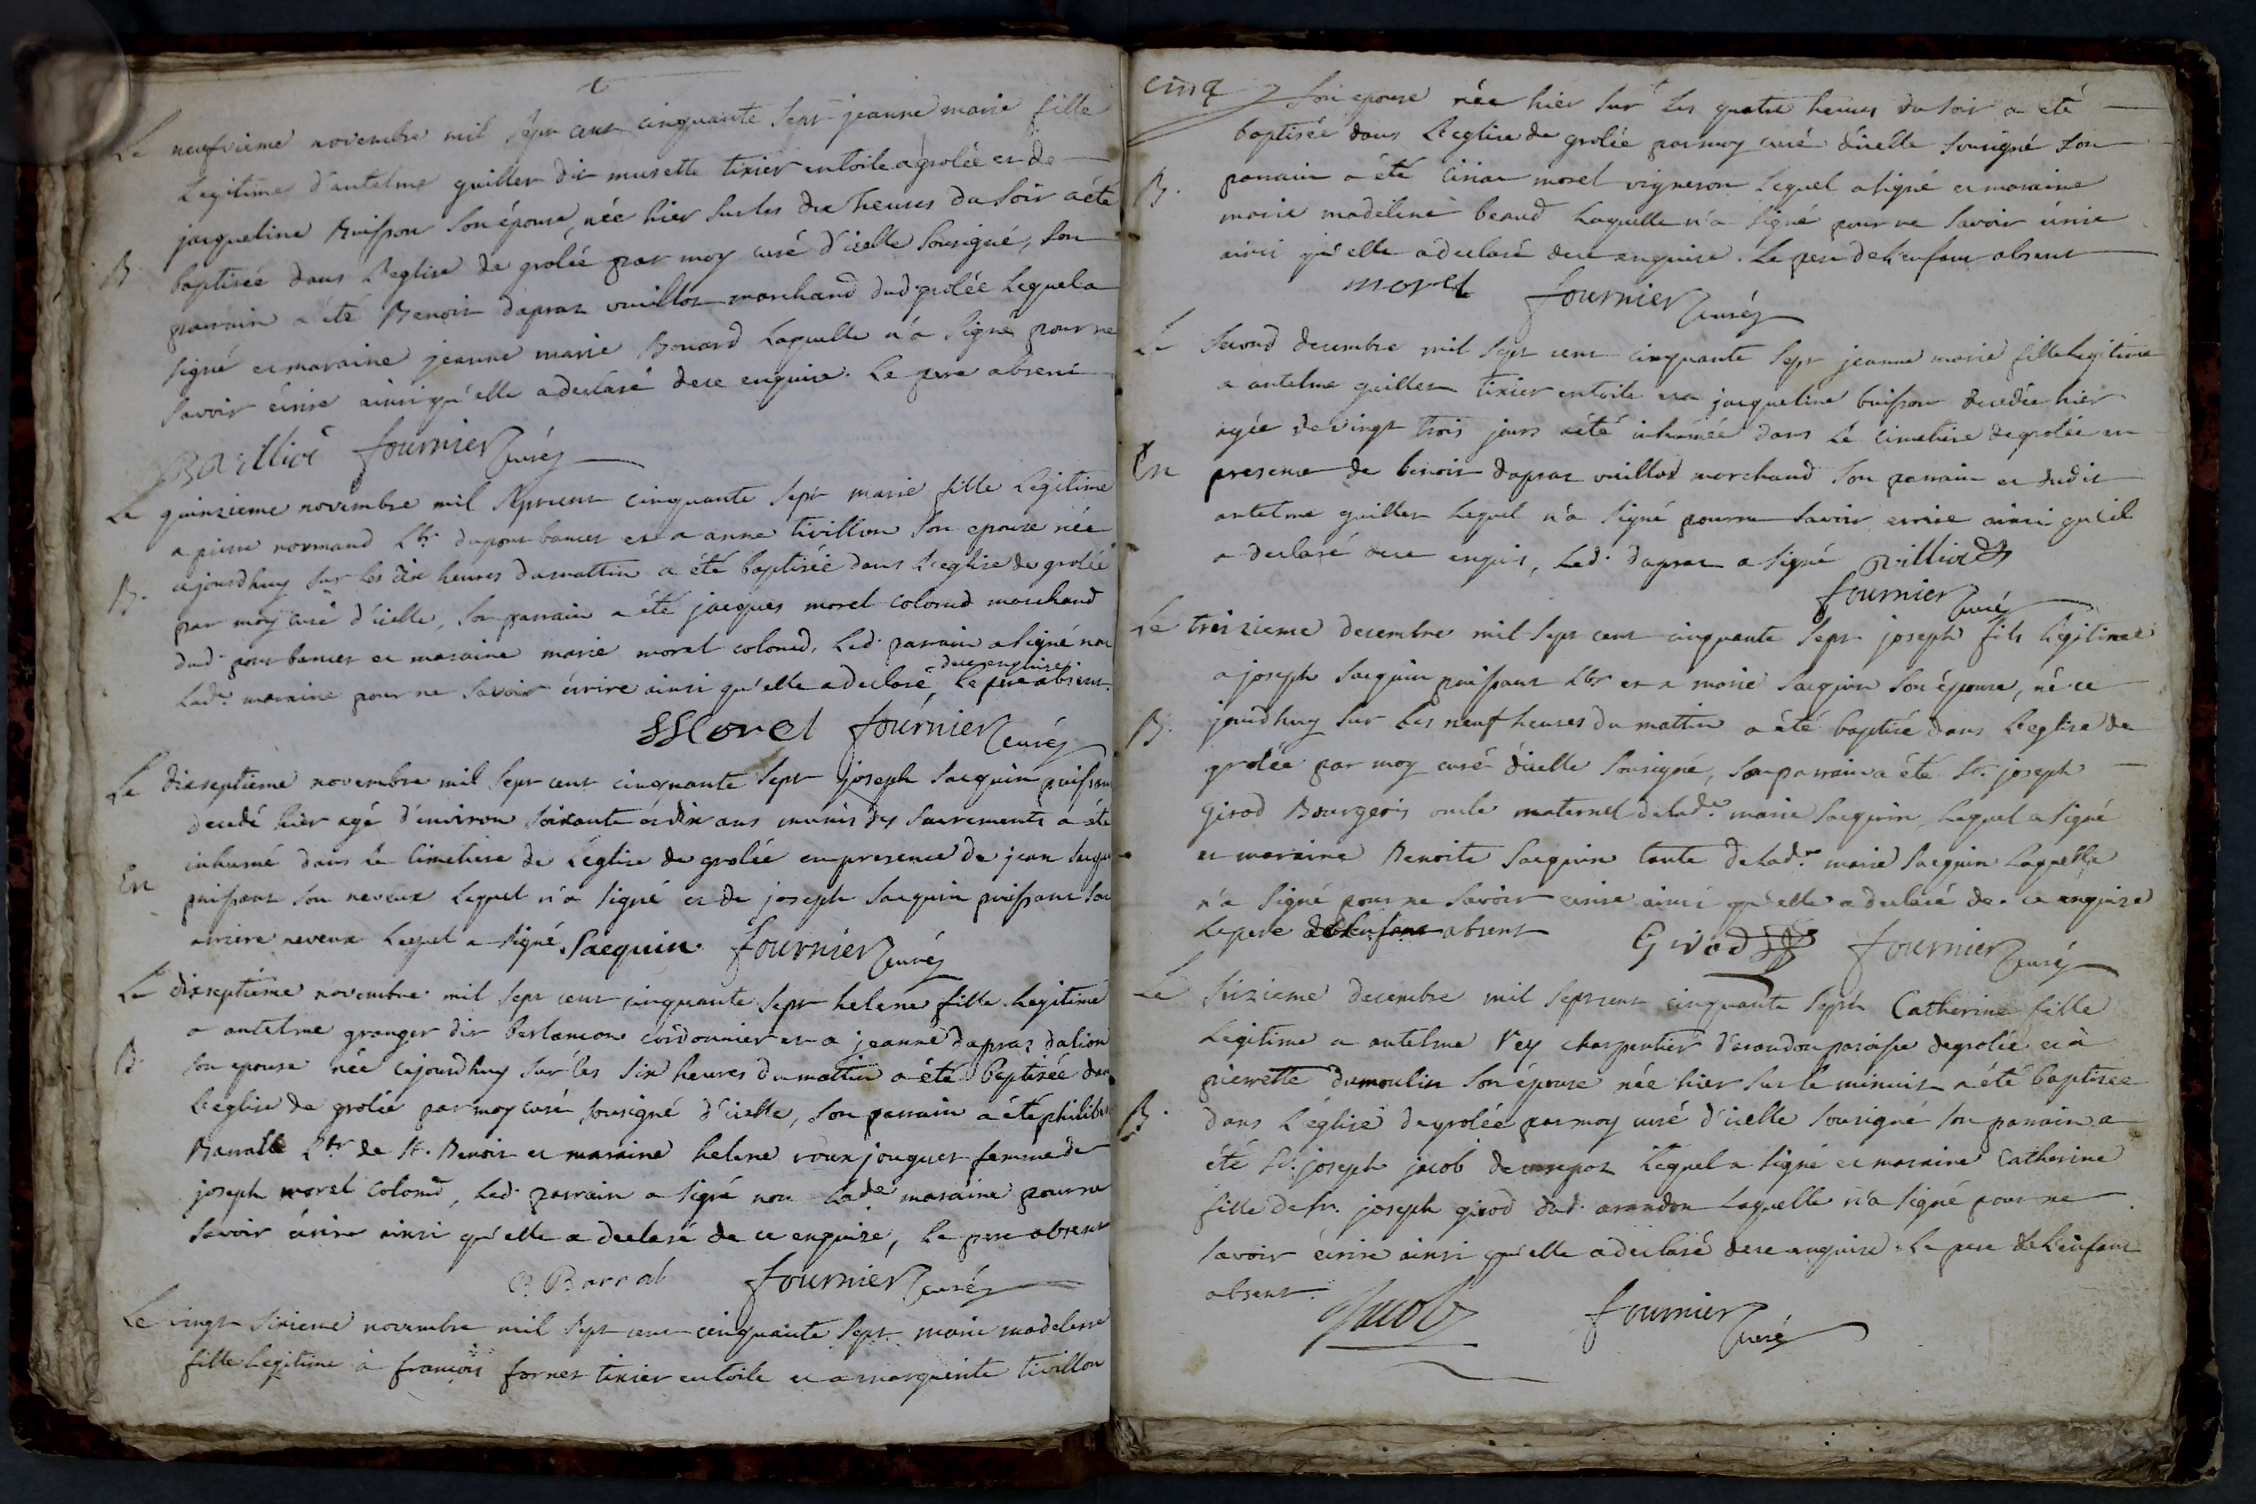 Le neufvieme novembre mil sept cent cinquante sept jeanne marie fille
Legitime d'antelme guillet dit musette tixier en toile a grolée et de
jacqueline Buisson son épouse, née hier sur les dix heures du soir a été
B baptisée dans l'eglise de grolée par moy curé d'icelle sousigné, son
parrain a été Benoit dapraz vuilliot marchand dud. grolée Lequel a
signé et maraine jeanne marie Bouard Laquelle n'a signé pour ne
savoir écrire ainsi qu'elle a declaré de ce enquise. Le pere absent
fournier curé
Le quinzieme novembre mil sept cent cinquante sept marie fille Legitime
a pierre normand Lbr. du pont bancet et a anne tivillon son epouse née
B. cejourdhuy sur les dix heures du mattin a été baptisée dans L'eglise de grolée
par moy curé d'icelle, son parrain a été jacques morel colomd marchand
dud. pont bancet et maraine marie morel colomd, Led. parrain a signé non
Lad.e maraine pour ne savoir écrire ainsi qu'elle a declaré de ce enquise, Le pere absent.
Morel fournier curé
Le dixseptieme novembre mil sept cent cinquante sept joseph sacquin puissant
decedé hier agé d'environ soixante et dix ans munis des sacrements a été
inhumé dans le cimetiere de L'église de grolée en presence de jean sacqu
En puissant son neveux Lequel n'a signé et de joseph sacquin puissant son
arriere neveux Lequel a signé. Sacquin. fournier curé
Le dixseptième novembre mil sept cent cinquante sept helene fille Legitime
a antelme granger dit berlancon cordonnier et a jeanne dapraz dalion
B son epouse née cejourdhuy sur les six heures du mattin a été baptisée dan
L'eglise de grolée par moy curé sousigné d'icelle, son parrain a été philib
Barralle Lbr de St. Benoit et maraine helene roux jouguet femme de
joseph morel colomd, Led. parrain a signé non Lad.e maraine pour ne
savoir écrire ainsi qu'elle a declaré de ce enquise, Le pere absent
Barral fournier curé
Le vingt sixieme novembre mil sept cent cinquante sept marie madelene
fille Legitime à francois fornet tixier en toile et a marguerite tivillon
cinq
son epouse née hier sur les quatre heures du soir a été
baptisée dans L'eglise de grolée par moy curé d'icelle sousigné son
B. parrain a été morel vigneron Lequel a signé et maraine
marie madelene beaud Laquelle n'a signé pour ne savoir écrire
ainsi qu'elle a declaré de ce enquise. Le pere de L'enfant absent
morel fournier curé
Le second decembre mil sept cent cinquante sept jeanne marie fille Legitime
a antelme guillet tixier en toile et a jacqueline buisson decedée hier
agée de vingt trois jours a été inhumée dans Le cimetiere de grolée en
En presence de benoit dapraz vuilliod marchand son parrain et dudit
antelme guillet Lequel n'a signé pour ne savoir ecrire ainsi qu'il
a declaré de ce enquis, Led. dapraz a signé villiod
fournier curé
Le treizieme decembre mil sept cent cinquante sept joseph fils Légitime
a joseph sacquin puissant Lbr et a marie sacquin son épouse, né ce
B. jourdhuy sur Les neuf heures du mattin a été baptisé dans L'eglise de
grolée par moy curé d'icelle sousigné, son parrain a été Sr. joseph
girod Bourgeois oncle maternel de lad.e marie sacquin, Lequel a signé
et maraine Benoite sacquin tante de Lad.e marie sacquin Laquelle
n'a signé pour ne savoir ecrire ainsi qu'elle a declaré de ce enquise
Le pere de l'enfant absent Girod fournier curé
Le seizieme decembre mil sept cent cinquante sept Catherine fille
Legitime a antelme Vey charpentier d'arandon paroisse de grolée et à
pierrette dumoulin son épouse née hier sur le minuit a été baptisée
B. dans L'église de grolée par moy curé d'icelle sousigné son parrain a
été Sr. joseph jacob Lequel a signé et maraine Catherine
fille de Sr. joseph girod dud. arandon Laquelle n'a signé pour ne
savoir écrire ainsi qu'elle a declaré de ce enquise. Le pere de L'enfant
absent.
Jacob fournier curé